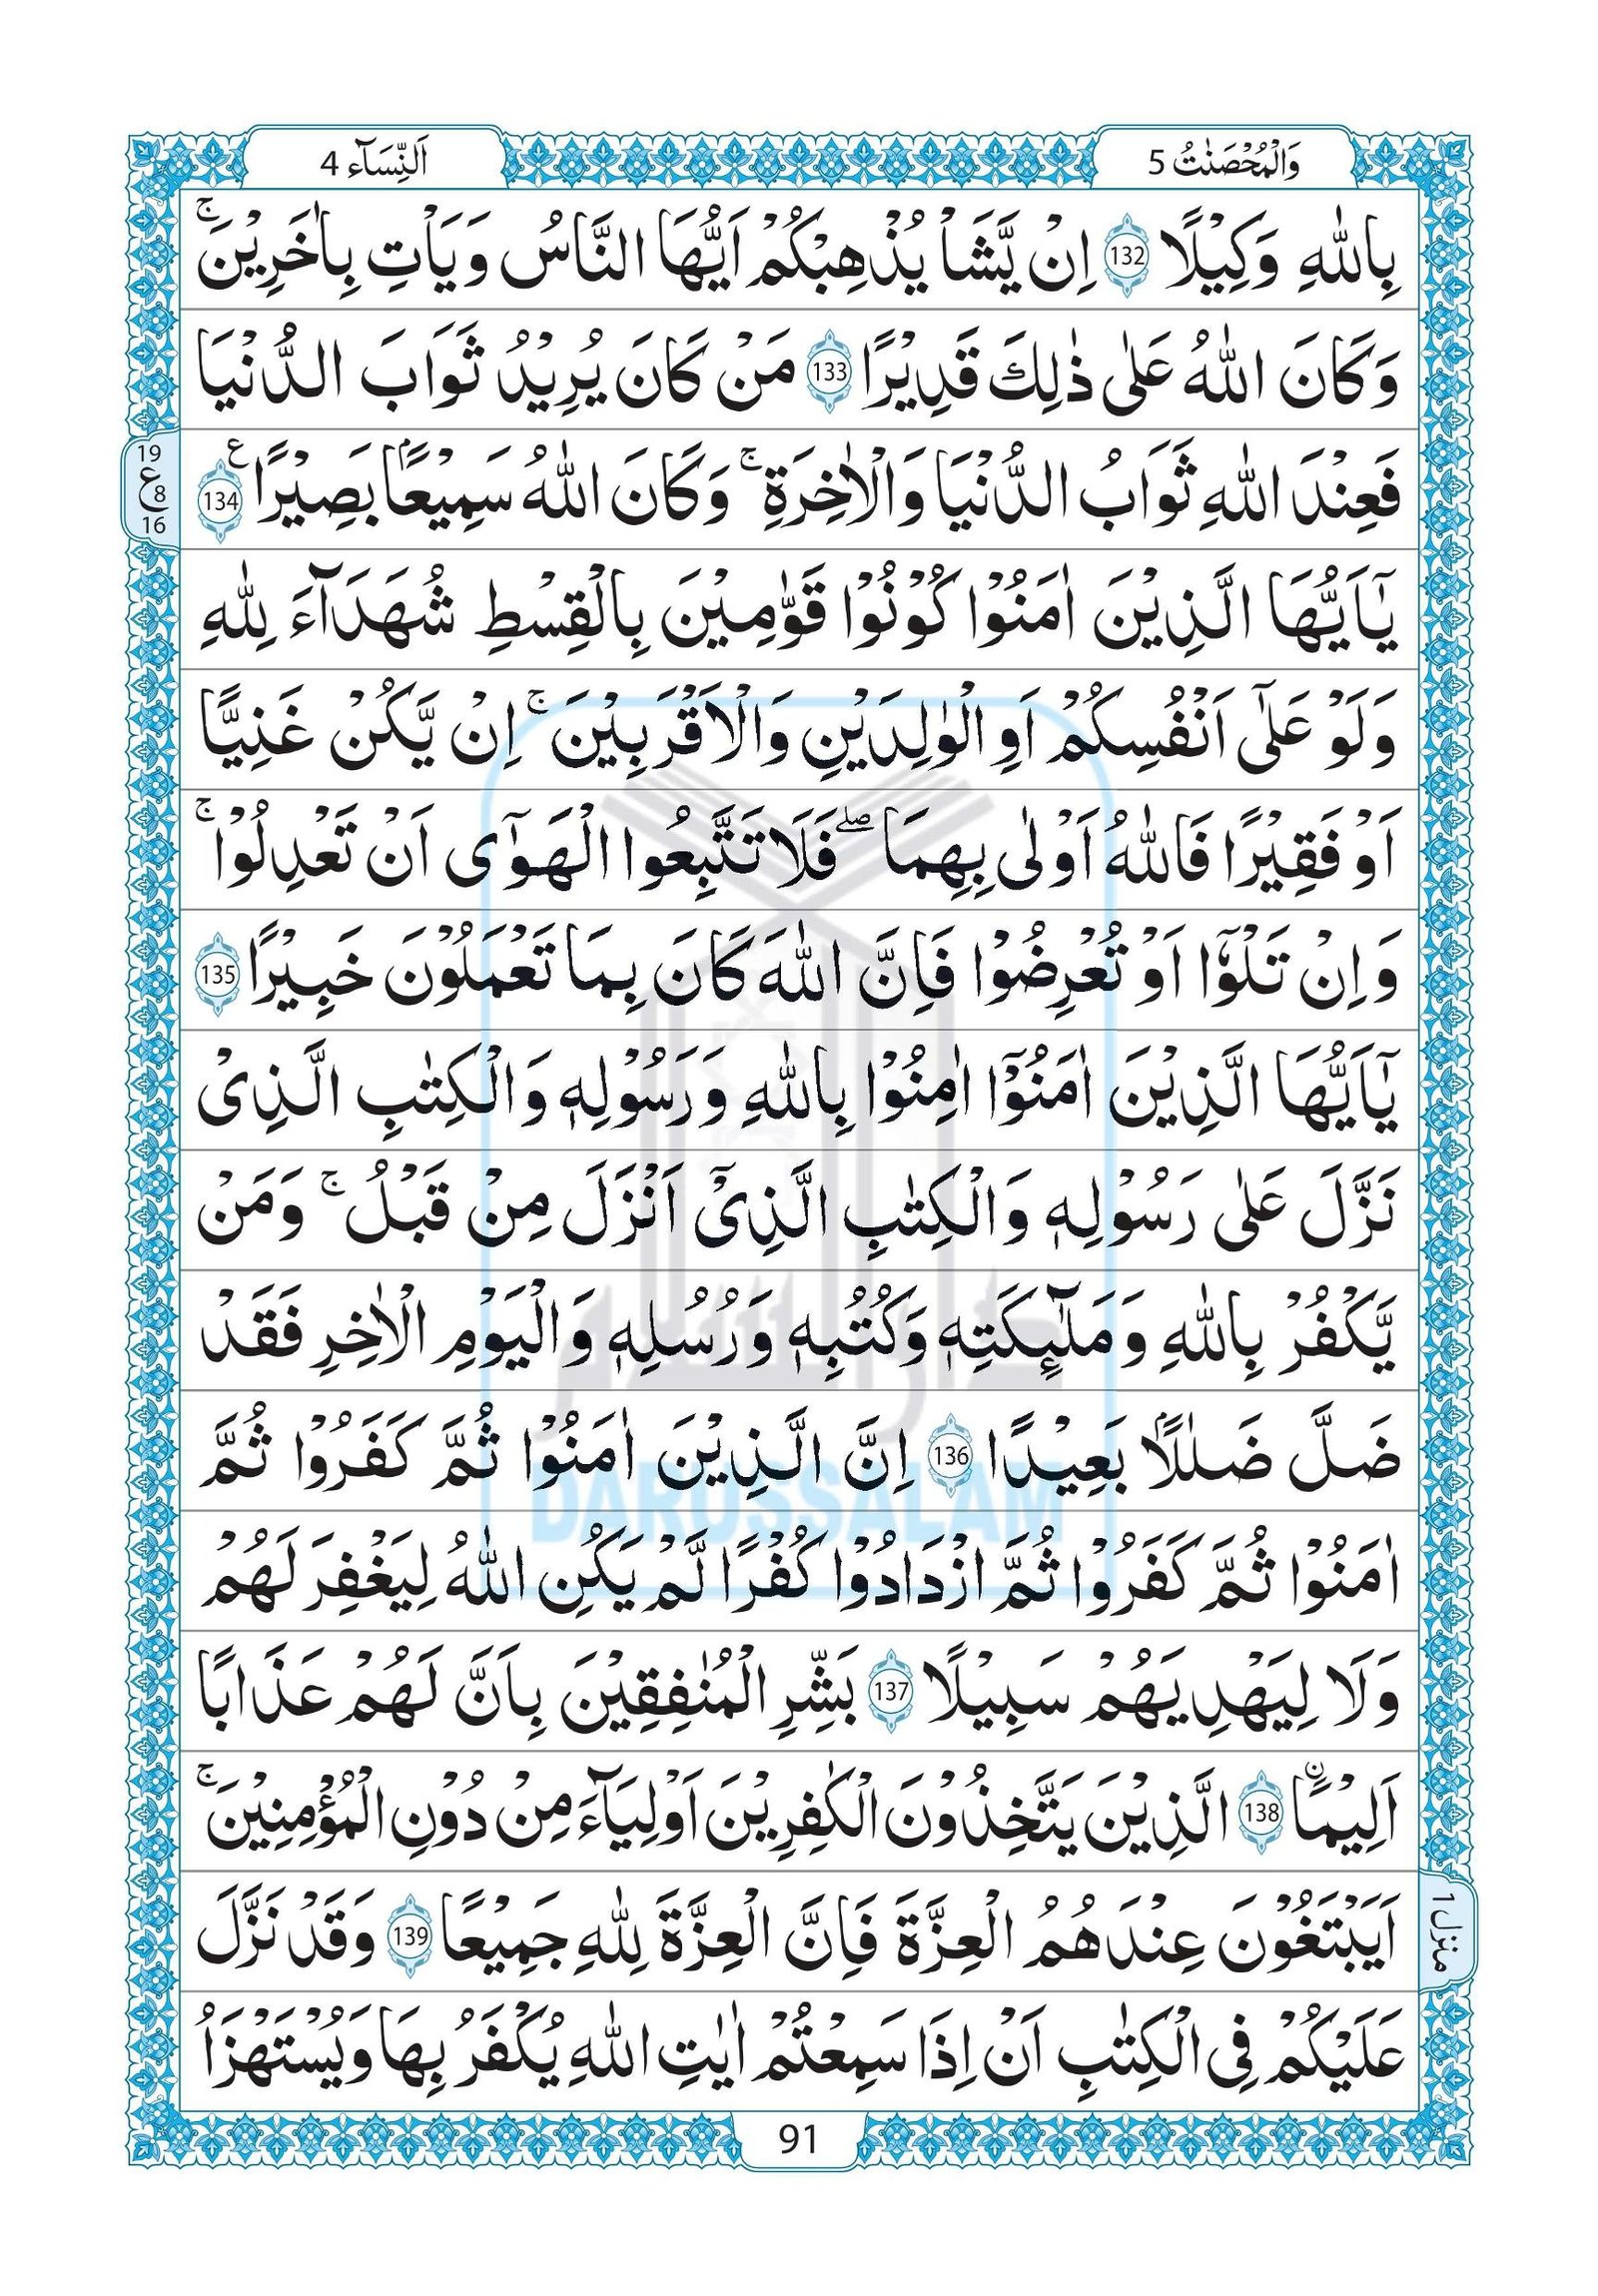 وَالْمُحْصَنٰتُ 5
اَلنِّسَآء 4
بِاللّٰهِ وَكِيْلًا 132 اِنْ يَّشَاْ يُذْهِبْكُمْ اَيُّهَا النَّاسُ وَيَاْتِ بِاٰخَرِيْنَ ۚ
وَكَانَ اللّٰهُ عَلٰى ذٰلِكَ قَدِيْرًا 133 مَنْ كَانَ يُرِيْدُ ثَوَابَ الدُّنْيَا
فَعِنْدَ اللّٰهِ ثَوَابُ الدُّنْيَا وَالْاٰخِرَةِ ۚ وَكَانَ اللّٰهُ سَمِيْعًۢا بَصِيْرًا ع 134
19
ع 8
16
يٰٓاَيُّهَا الَّذِيْنَ اٰمَنُوْا كُوْنُوْا قَوّٰمِيْنَ بِالْقِسْطِ شُهَدَآءَ لِلّٰهِ
وَلَوْ عَلٰٓى اَنْفُسِكُمْ اَوِ الْوٰلِدَيْنِ وَالْاَقْرَبِيْنَ ۚ اِنْ يَّكُنْ غَنِيًّا
اَوْ فَقِيْرًا فَاللّٰهُ اَوْلٰى بِهِمَا ۖ فَلَا تَتَّبِعُوا الْهَوٰٓى اَنْ تَعْدِلُوْا ۚ
وَاِنْ تَلْوٗٓا اَوْ تُعْرِضُوْا فَاِنَّ اللّٰهَ كَانَ بِمَا تَعْمَلُوْنَ خَبِيْرًا 135
يٰٓاَيُّهَا الَّذِيْنَ اٰمَنُوْٓا اٰمِنُوْا بِاللّٰهِ وَرَسُوْلِهٖ وَالْكِتٰبِ الَّذِيْ
نَزَّلَ عَلٰى رَسُوْلِهٖ وَالْكِتٰبِ الَّذِيْٓ اَنْزَلَ مِنْ قَبْلُ ۚ وَمَنْ
يَّكْفُرْ بِاللّٰهِ وَمَلٰٓئِكَتِهٖ وَكُتُبِهٖ وَرُسُلِهٖ وَالْيَوْمِ الْاٰخِرِ فَقَدْ
ضَلَّ ضَلٰلًاۢ بَعِيْدًا 136 اِنَّ الَّذِيْنَ اٰمَنُوْا ثُمَّ كَفَرُوْا ثُمَّ
DARUSSALAM
اٰمَنُوْا ثُمَّ كَفَرُوْا ثُمَّ ازْدَادُوْا كُفْرًا لَّمْ يَكُنِ اللّٰهُ لِيَغْفِرَ لَهُمْ
وَلَا لِيَهْدِيَهُمْ سَبِيْلًا 137 بَشِّرِ الْمُنٰفِقِيْنَ بِاَنَّ لَهُمْ عَذَابًا
اَلِيْمًا ۨ 138 الَّذِيْنَ يَتَّخِذُوْنَ الْكٰفِرِيْنَ اَوْلِيَآءَ مِنْ دُوْنِ الْمُؤْمِنِيْنَ ۚ
اَيَبْتَغُوْنَ عِنْدَهُمُ الْعِزَّةَ فَاِنَّ الْعِزَّةَ لِلّٰهِ جَمِيْعًا 139 وَقَدْ نَزَّلَ
منزل 1
عَلَيْكُمْ فِى الْكِتٰبِ اَنْ اِذَا سَمِعْتُمْ اٰيٰتِ اللّٰهِ يُكْفَرُ بِهَا وَيُسْتَهْزَاُ
91